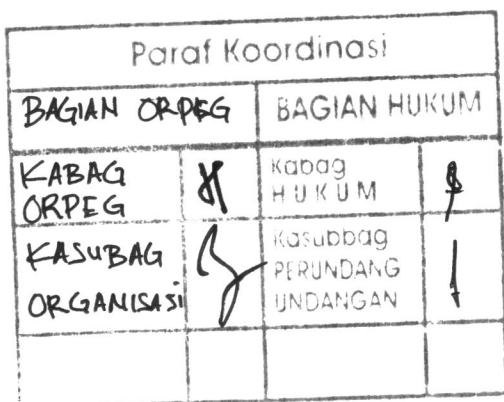 Paraf Koordinasi
BAGIAN ORPEG
BAGIAN HUKUM
KABAG
ORPEG
Kabag
HUKUM
KASUBAG
ORGANISASI
Kasubbag
PERUNDANG
UNDANGAN